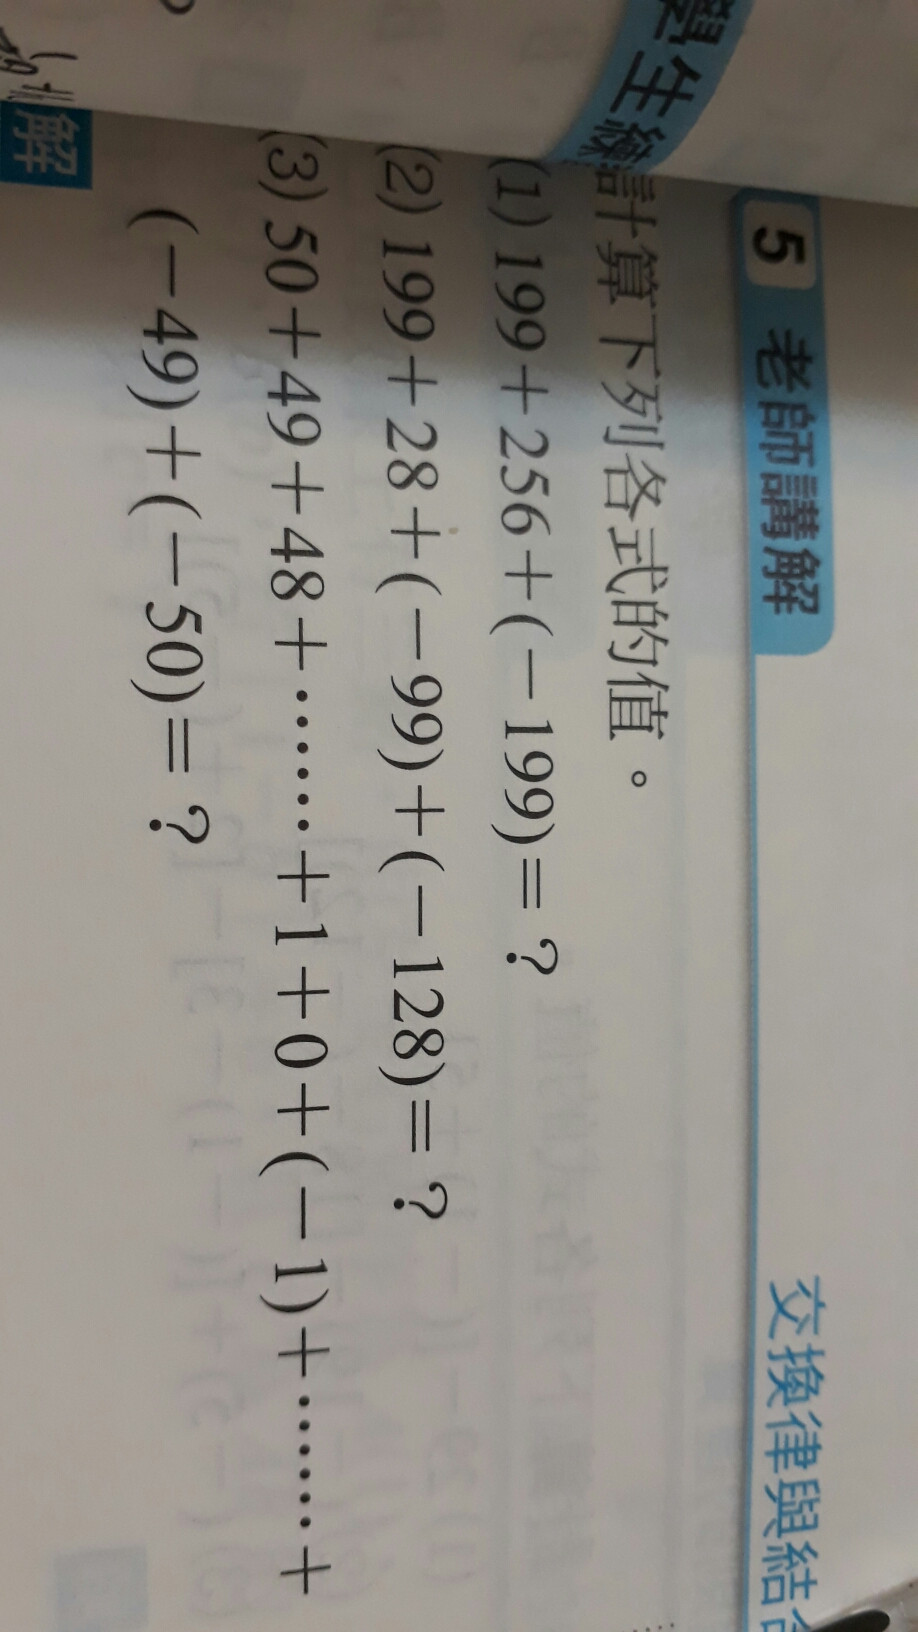 學生練
5 老師講解
交換律與結合
計算下列各式的值。
(1) 199＋256＋(－199)＝？
(2) 199＋28＋(－99)＋(－128)＝？
(3) 50＋49＋48＋⋯⋯＋1＋0＋(－1)＋⋯⋯＋
(－49)＋(－50)＝？
解